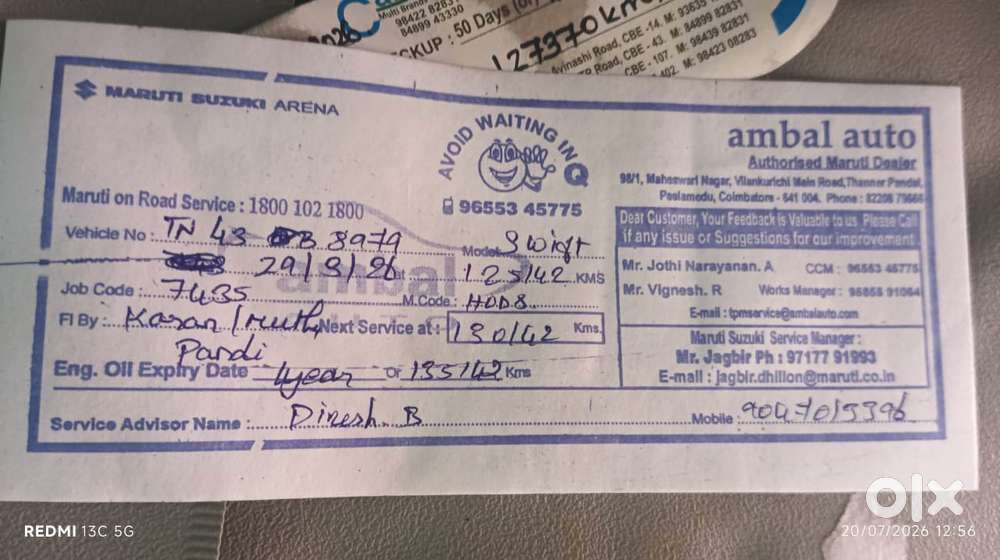 2026
Multi Brand
98422 8283
84899 43330
CKUP : 50 Days (or)
127370km
Avinashi Road, CBE -14. M: 93635
Road, CBE - 43. M: 84899 82831
CBE - 107. M: 98439 82831
402. M: 98423 08283
MARUTI SUZUKI ARENA
AVOID WAITING IN Q
96553 45775
ambal auto
Authorised Maruti Dealer
98/1, Maheswari Nagar, Vilankurichi Main Road, Thanner Pandal,
Peelamedu, Coimbatore - 641 004. Phone : 82208 79666
Maruti on Road Service : 1800 102 1800
Vehicle No : TN 43 B 8979
Model: Swift
29/3/26 at 125142 KMS
Job Code : 7435
M.Code : HOD8
FI By : Karan / muthu Pandi
Next Service at : 130142 Kms.
Eng. Oil Expiry Date 1year or 135142 Kms
Service Advisor Name : Dinesh. B
Mobile : 9047015396
Dear Customer, Your Feedback is Valuable to us. Please Call
if any issue or Suggestions for our improvement
Mr. Jothi Narayanan. A CCM : 96553 45775
Mr. Vignesh. R Works Manager : 95858 91064
E-mail : tpmservice@ambalauto.com
Maruti Suzuki Service Manager :
Mr. Jagbir Ph : 97177 91993
E-mail : jagbir.dhillon@maruti.co.in
ambal
AUTO
olx
REDMI 13C 5G
20/07/2026 12:56